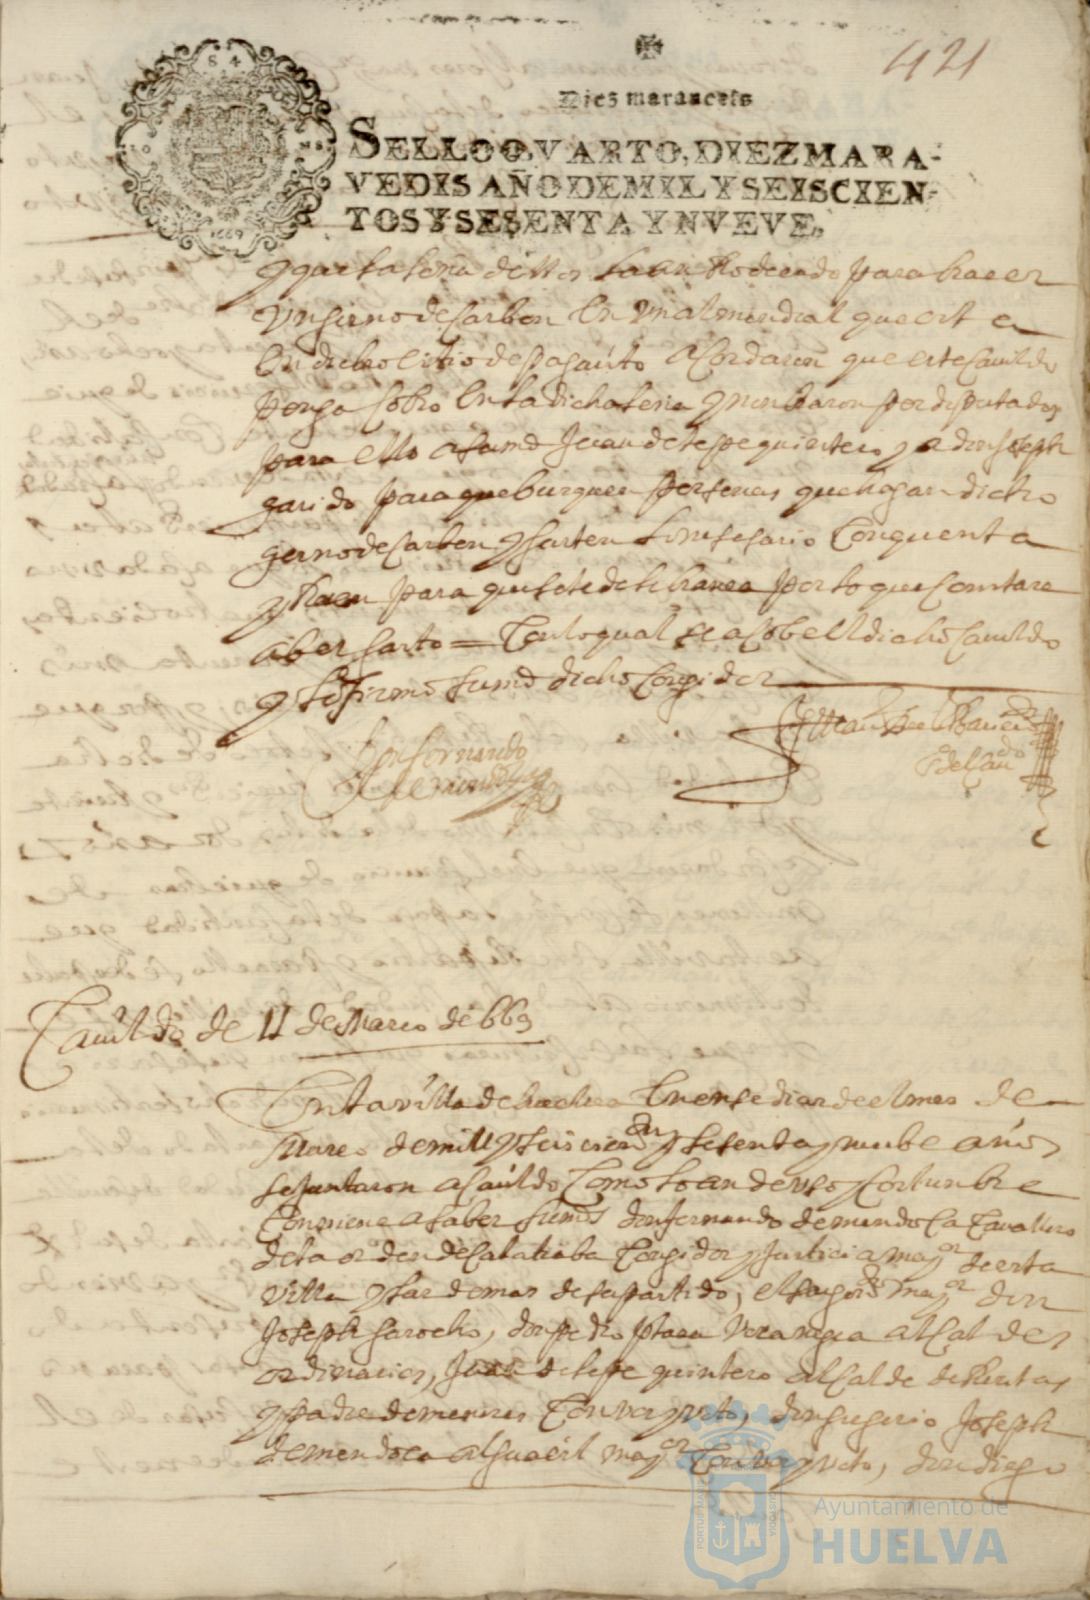 421
Diez marauedis
SELLO QVARTO, DIEZ MARA-
VEDIS, AÑO DE MIL Y SEISCIEN-
TOS Y SESENTA Y NVEVE.
1669
y que la leña dellos para hacer
Un jirno de Carbon En Un almendral que est a
En dicho sitio de acordaron que este Cauildo
ponga Cobro En la dicha leña y nonbraron por diputados
para ello a sumd Juan de lepe quintero y a don Joseph
garido para que busquen personas que hagan dicho
girno de Carbon y gasten lo nesesario Con quenta
y Raçon para que se le de libranca por lo que Constare
aber gasto = Con lo qual se acobo El dicho Cauildo
y lo firmo sumd dicho Corejidor
Don fernando
de mendoça
Cauildo de 11 de Março de 669
En la villa de huelua En onse dias de el mes de
Março de mill y seiscientos y sesenta y nuebe años
se juntaron a Cauildo Como lo an de vso y Costunbre
Conviene a saber sumds don fernando de mendoça Cavallero
de la orden de Calatraba Corejidor y Justicia mayor de esta
villa y las demas de su partido, el mayor don
Joseph garocho, don pedro plaça Veranegra alCaldes
ordinarios, Juan de lepe quintero alCalde de Rentas
y padre de menores Con voz y voto, don gregorio Joseph
de mendoça alguasil mayor Con voz y voto, don diego
PORTUS MARIS
CUSTODIA
Ayuntamiento de
HUELVA